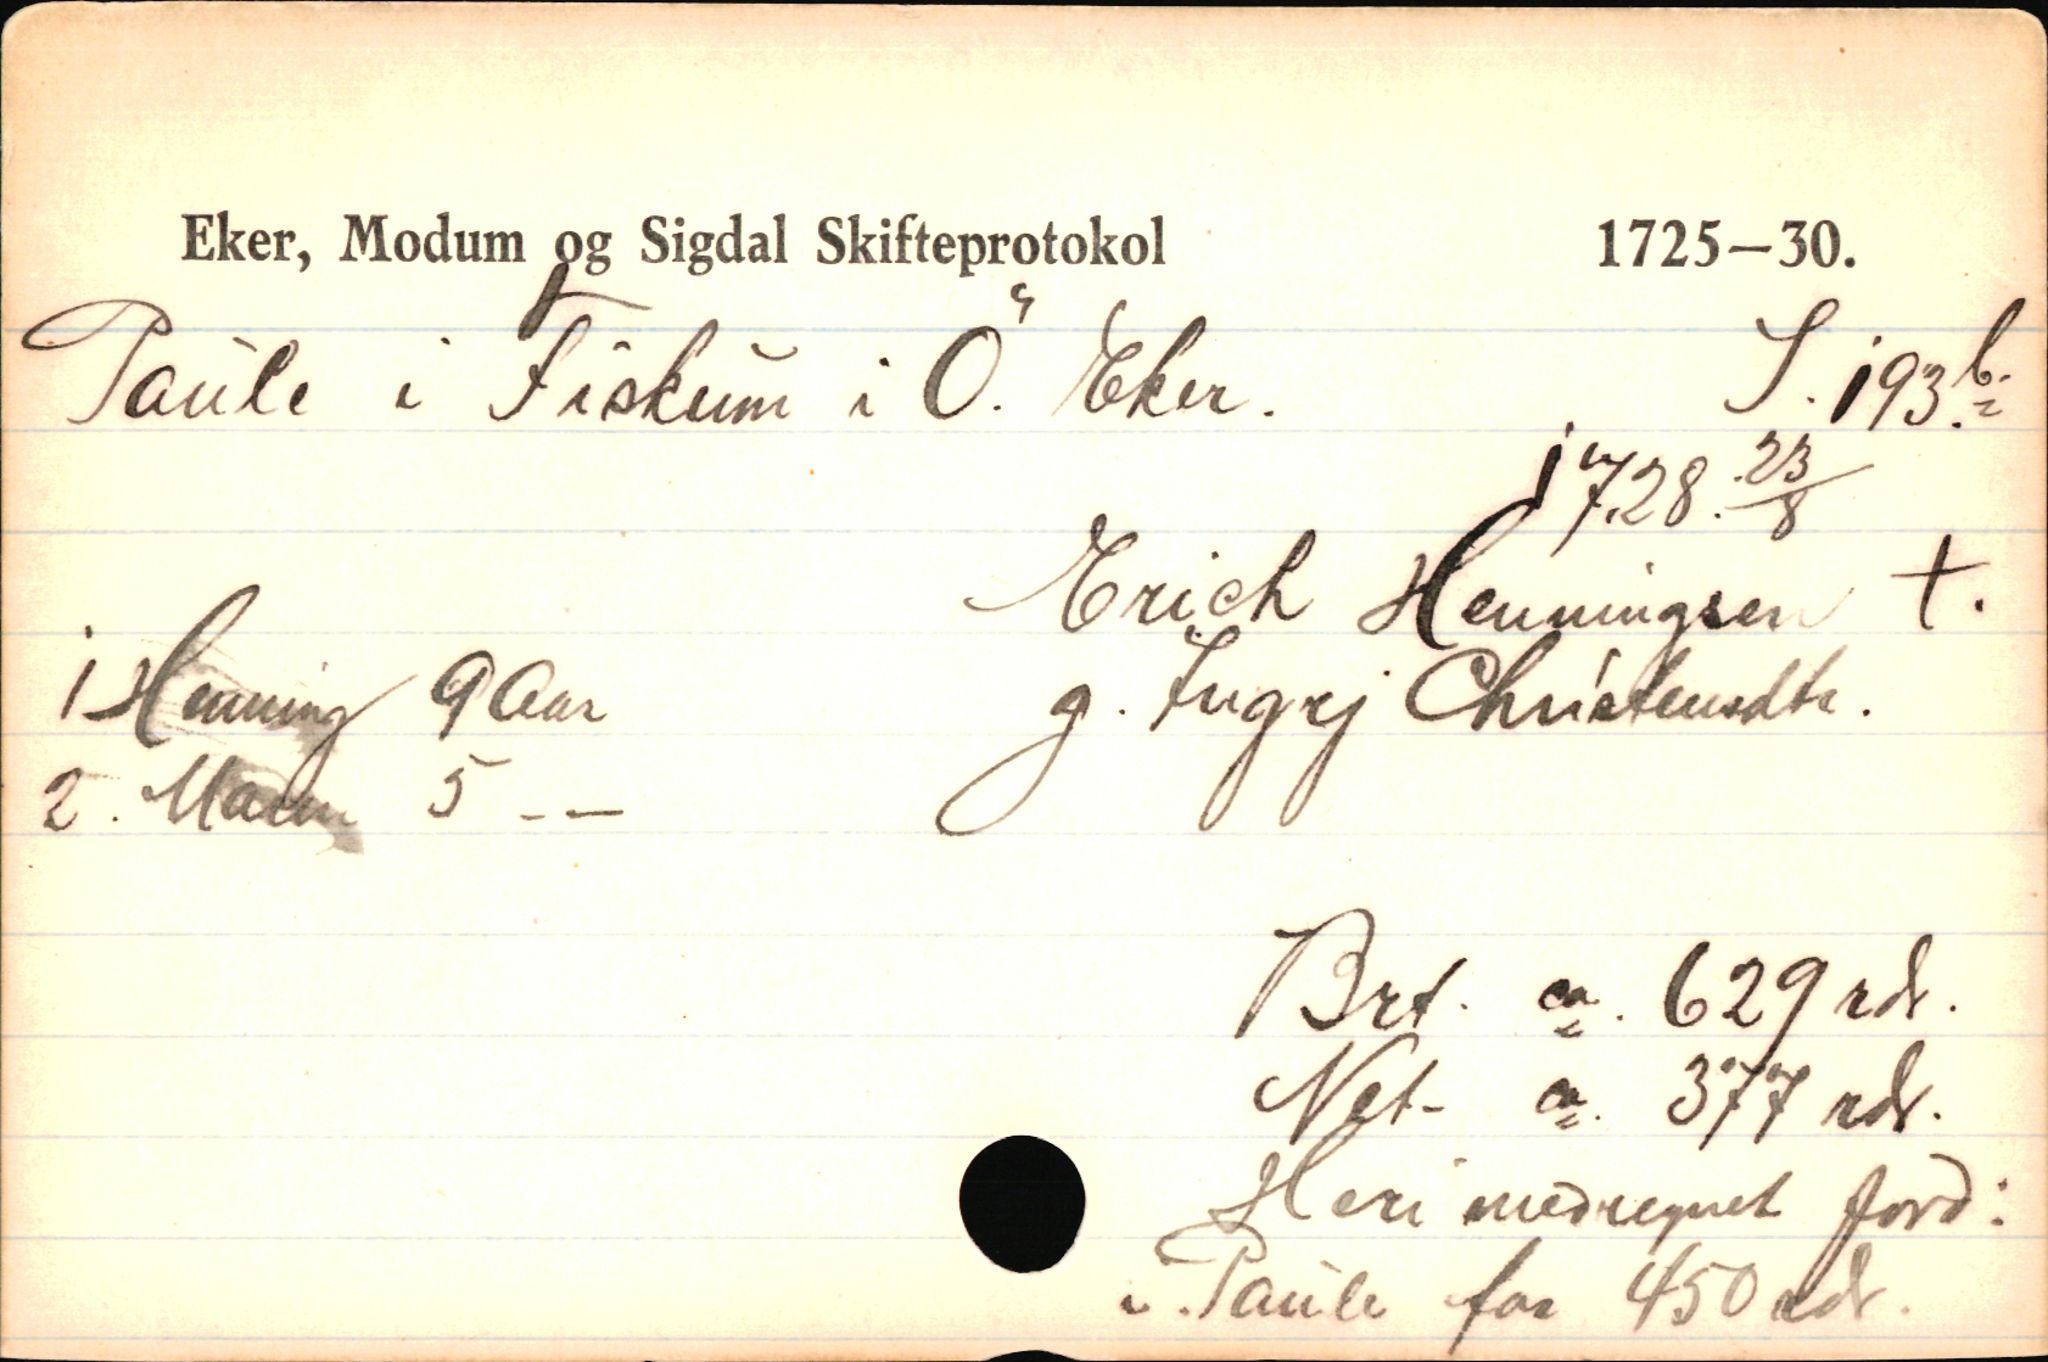 Eker, Modum og Sigdal Skifteprotokol 1725—30.
Paule i Fiskum i Ö. Eker. S. 193.b.
1728. 23/8
Erich Henningsen †.
g. Ingrj Christensdtr.
1 Henning 9 Aar
2. Maren 5 - —
Brt. ca. 629 rdr.
Net- ca. 377 rdr.
Heri medregnet Jord:
i Paule for 450 rdr.